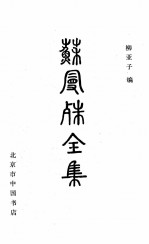 柳亚子 编
蘇曼殊全集
北京市中国书店